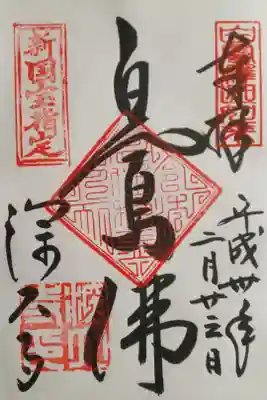 奉拝
平成卅年
二月廿三日
白鳳佛
新国宝指定
深大寺